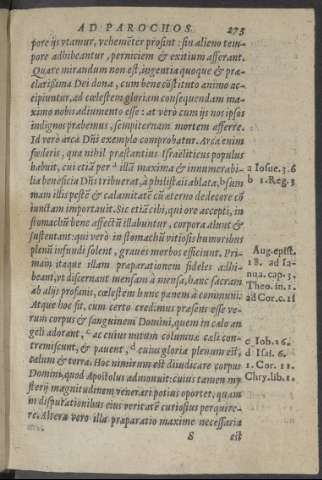 AD PAROCHOS. 275
pore ijs vtamur, vehemẽter prosint: sin alieno tem-
pore adhibeantur, perniciem & exitium afferant.
Quare mirandum non est, ingentia quoque & præ-
clarissima Dei dona, cum bene cõstituto animo ac-
cipiuntur, ad cœlestem gloriam consequendam ma-
ximo nobis adiumento esse: at verò cum ijs nos ipsos
indignos præbemus, sempiternam mortem afferre.
Id verò arca Dñi exemplo comprobatur. Arca enim
fœderis, qua nihil præstantius Israëliticus populus
habuit, cui etiã per a illã maxima & innumerabi-
lia beneficia Dñs tribuerat, à philistæis ablata, b sum
mam illis pestẽ & calamitatẽ cũ æterno dedecore cõ
iunctam importauit. Sic etiã cibi, qui ore accepti, in
stomachũ bene affectũ illabuntur, corpora alunt &
sustentant: qui verò in stomachũ vitiosis humoribus
plenũ infusi solent, graues morbos efficiunt. Pri-
mam itaque illam præparationem fideles adhi-
beant, vt discernant mensam à mensa, hanc sacram
ab alijs profanis, cœlestem hunc panem à communi.
Atque hoc fit, cum certò credimus præsens esse ve-
rum corpus & sanguinem Domini, quem in cælo an
geli adorant, c ac cuius nutum columnæ cæli con-
tremiscunt, & pauent, d cuius gloria plenum est
cælum & terra. Hoc nimirum est diiudicare corpus
Domini, quod Apostolus admonuit: cuius tamen my
sterij magnitudinem venerari potius oportet, quam
in disputationibus eius veritatẽ curiosius perquire-
re. Altera verò illa præparatio maxime necessaria
S est
a Iosue. 3. 6
b 1. Reg. 5
Aug. epist.
18. ad Ia-
nua. cap. 3.
Theo. in 1.
ad Cor. c. 11
c Iob. 26.
d Isai. 6.
1. Cor. 11.
Chry. lib. 1.